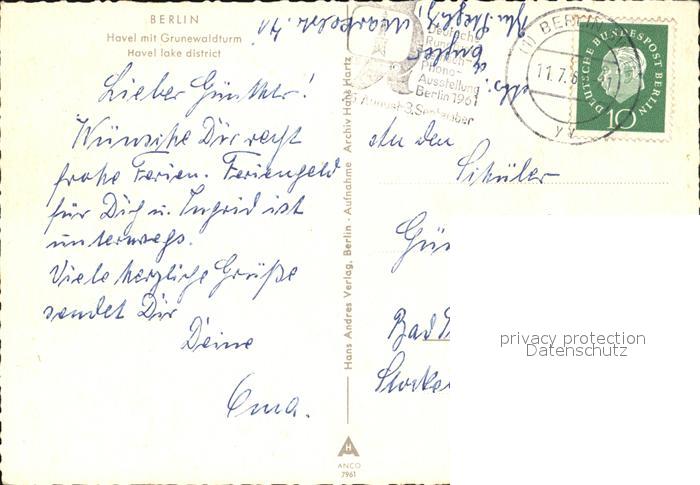 BERLIN
Havel mit Grunewaldturm
Havel lake district
Lieber Günther!
Wünsche Dir recht
frohe Ferien. Feriengeld
für Dich u. Ingrid ist
unterwegs.
Viele herzliche Grüße
sendet Dir
Deine
Oma.
Hans Andres Verlag, Berlin · Aufnahme Archiv Hans Hartz
ANCO
7961
Deutsche
Rundfunk-
Phono-
Ausstellung
Berlin 1961
August-3. September
(1) BERLIN
11.7.6
DEUTSCHE BUNDESPOST BERLIN
10
An den
Schüler
Gün
Bad
Stocke
privacy protection
Datenschutz